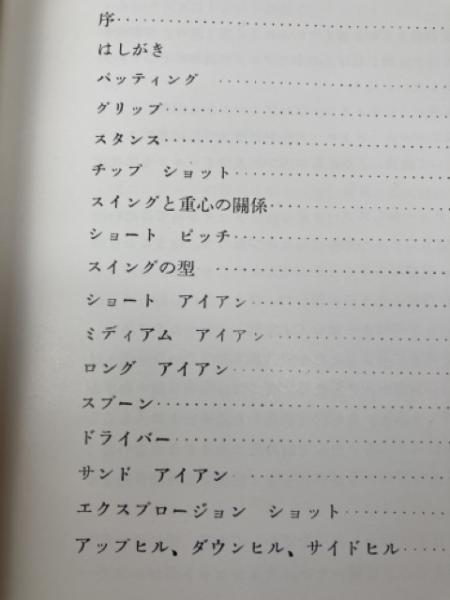 序
はしがき
パッティング
グリップ
スタンス
チップ ショット
スイングと重心の關係
ショート ピッチ
スイングの型
ショート アイアン
ミディアム アイアン
ロング アイアン
スプーン
ドライバー
サンド アイアン
エクスプロージョン ショット
アップヒル、ダウンヒル、サイドヒル